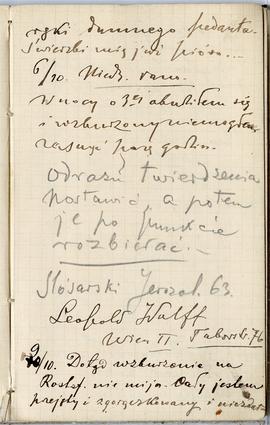 ręki dumnego pedanta.
Świerzbi mię już pióro...
6/10. Niedz. rano.
W nocy o 3ej obudziłem się
i wzburzony nie mogłem
zasnąć parę godzin.
odrazu twierdzenia
postawić, a potem
je po punkcie
rozbierać.
Ślósarski Jerozol. 63.
Leopold Wolff
Wien II. Taborstr. 76
9/10. Dotąd wzburzenie na
Rostaf. nie mija. Cały jestem
przejęty i zgorączkowany i